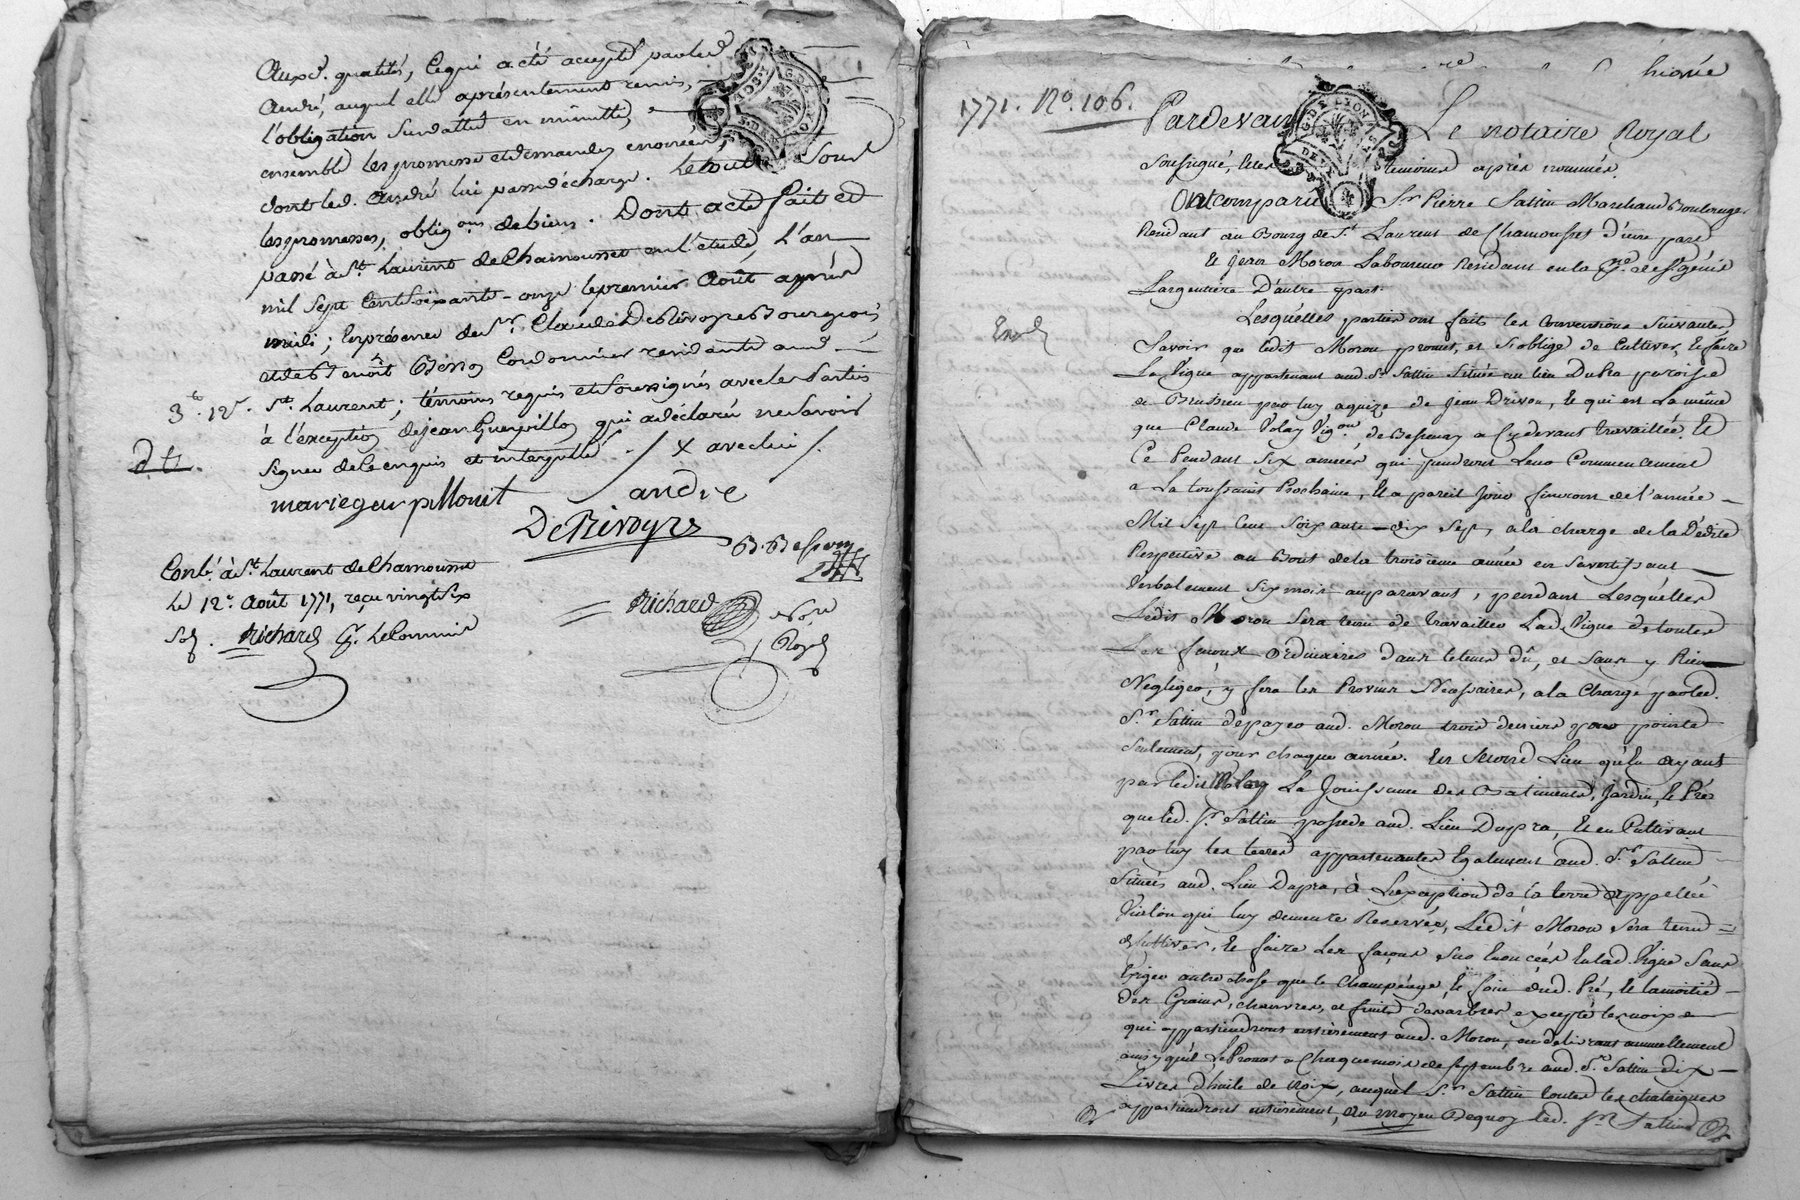 Auxd. qualités, ce qui a été accepté par led.
André, auquel elle a présentement remis,
l'obligation Susdatted en minutte,
ensemble les promesse et demandes enoncées,
dont led. André lui passe décharge. Le tout Sous
les promesses, oblig.on de biens. Dont acte fait et
passé à St. Laurent de Chamousset en l'étude, L'an
mil Sept Cent Soixante-onze le premier Août après
midi; En présence de Sr. Claude DeRivoyre Bourgeois,
et de Benoît Cordonnier residants aud
St. Laurent; témoins requis et Soussignés avec les Parties
à l'exception de jean Guerpillon qui a déclaré ne Savoir
Signer de ce enquis et interpellé ./. X avec lui /.
3.# 12s.
dt.
marie guerpillonit andre
DeRivoyre B. Besson
Conlé. à St. Laurent de Chamousset
Le 12e. Août 1771, reçu vingt Six
Sols. Richard Gr. Le Commis
Richard No.re
Royal
1771. No. 106.
Pardevant Le notaire Royal
Soussigné, et les temoins après nommés.
Ont comparu Sr. Pierre Sattin Marchand Boulanger
Residant au Bourg de St. Laurent de Chamousset d'une part
Et Jean Moron Laboureur Residant en la Pse. de St. Genis
Largentiere D'autre part.
Lesquelles parties ont faits les Conventions Suivantes
Savoir que Ledit Moron promet, et S'oblige de Cultiver, Et faire
La Vigne appartenant aud. Sr. Sattin Située au lieu Dupra paroisse
de Brussieu par luy aquize de Jean Drivon, Et qui est La même
que Claude Volay Vig.on de Bessenay a Cydevant travaillée, Et
Ce Pendant Six années qui prendront Leur Commencement
a La toussaint Prochaine, Et a pareil Jour finiront de l'année
Mil Sept Cent Soixante-dix Sept, a la charge de la Dédite
Respective au Bout de la troisieme année en S'avertissant
Verbalement Six mois auparavant, pendant Lesquelles
Ledit Moron Sera tenu de travailler Lad. Vigne de toutes
Les façons Ordinaires dans le tems dû, et Sans y Rien
Negliger, y fera les Provins Necessaires, a la Charge par led.
Sr. Sattin de payer aud. Moron trois deniers pour pointe
Seulement, pour chaque année. En Second Lieu qu'En ayant
par ledit Moron La Jouissance des Batiments, Jardin, et Pré
que led. Sr. Sattin possede aud. Lieu Dupra, Et en Cultivant
par luy les terres appartenantes Egalement aud. Sr. Sattin
Situées aud. Lieu Dupra, à L'exception de la terre appellée
qui luy demeure Reservée, Ledit Moron Sera tenu
de Cultiver, Et faire Les façons Sus Enoncées En lad. Vigne Sans
Exiger autre chose que le Champéage, Le foin dud. Pré, Et la moitié
des Grains, chanvres, et fruits des arbres excepté les noix
qui appartiendront entierement aud. Moron, en delivrant annuellement
ainsy qu'il Le Promet a Chaque mois de Septembre aud. Sr. Sattin dix
Livres d'huile de noix, auquel Sr. Sattin toutes les chataignes
appartiendront entierement, Au moyen Dequoy led. Sr. Sattin